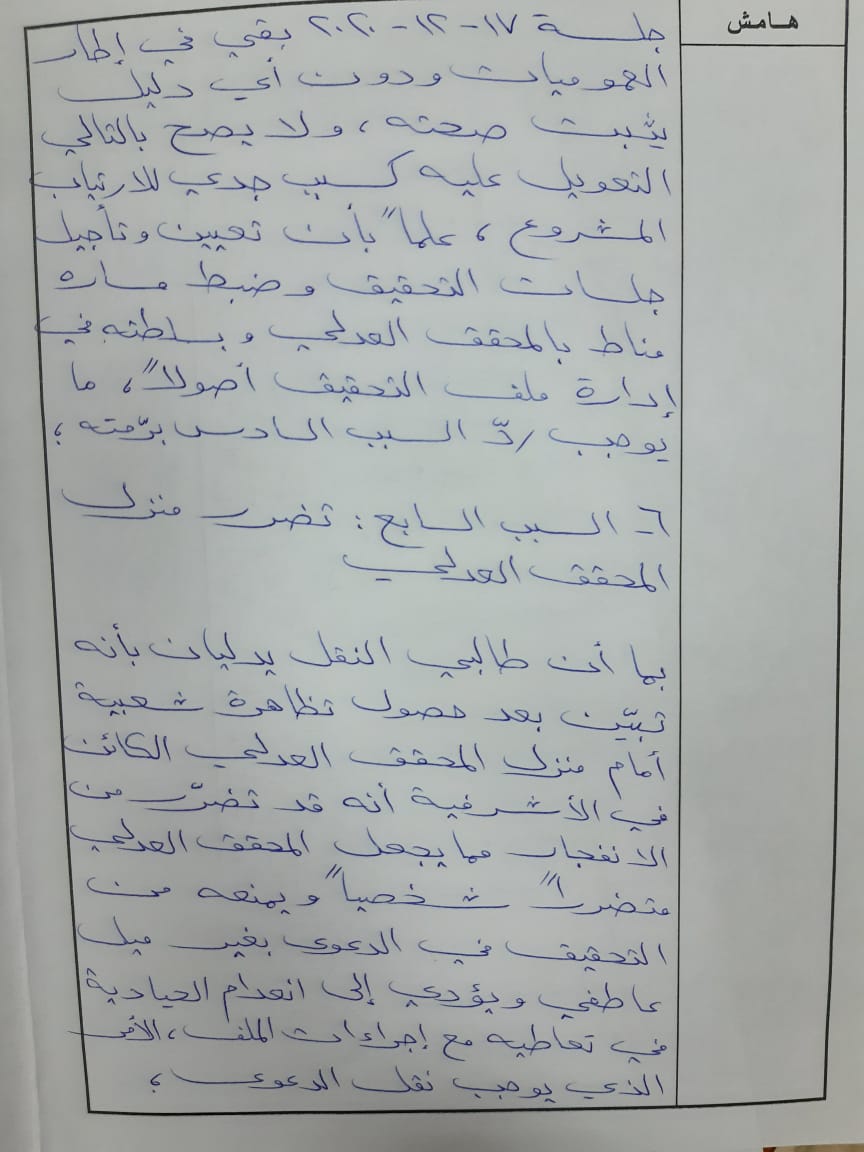 هامش
جلسة ١٧-١٢-٢٠٢٠ بقي في إطار
العموميات ودون أي دليل
يثبت صحته، ولا يصح بالتالي
التعويل عليه كسبب جدي للارتياب
المشروع، علماً بأن تعيين وتأجيل
جلسات التحقيق وضبط مساره
مناط بالمحقق العدلي وبسلطته في
إدارة ملف التحقيق أصولاً، ما
يوجب ردّ السبب السادس برّمته؛
٦- السبب السابع: تضرر منزل
المحقق العدلي
بما أن طالبي النقل يدليان بأنه
تبيّن بعد حصول تظاهرة شعبية
أمام منزل المحقق العدلي الكائن
في الأشرفية أنه قد تضرّر من
الانفجار مما يجعل المحقق العدلي
متضرراً شخصياً ويمنعه من
التحقيق في الدعوى بغير ميل
عاطفي ويؤدي إلى انعدام الحيادية
في تعاطيه مع إجراءات الملف، الأمر
الذي يوجب نقل الدعوى؛